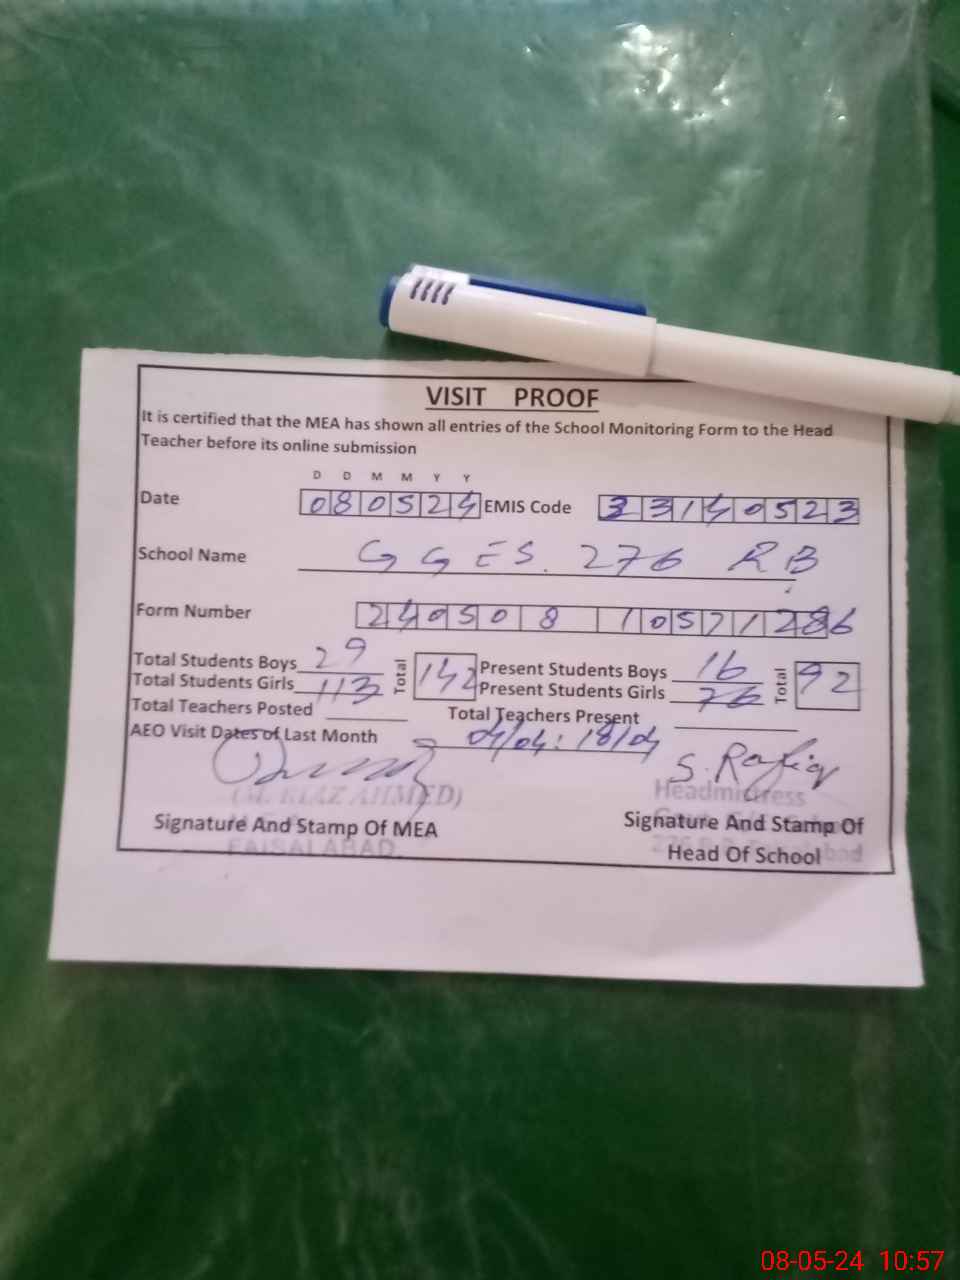 VISIT PROOF
It is certified that the MEA has shown all entries of the School Monitoring Form to the Head
Teacher before its online submission
D D M M Y Y
Date 080524 EMIS Code 33140523
School Name GGES. 276 RB
Form Number 240508 10571286
Total Students Boys 29 Total 142 Present Students Boys 16 Total 92
Total Students Girls 113 Present Students Girls 76
Total Teachers Posted Total Teachers Present
AEO Visit Dates of Last Month 04/04: 18/04
S. Rafiq
(M. RIAZ AHMED) Headmistress
Signature And Stamp Of MEA Signature And Stamp Of
FAISALABAD Head Of School
08-05-24 10:57